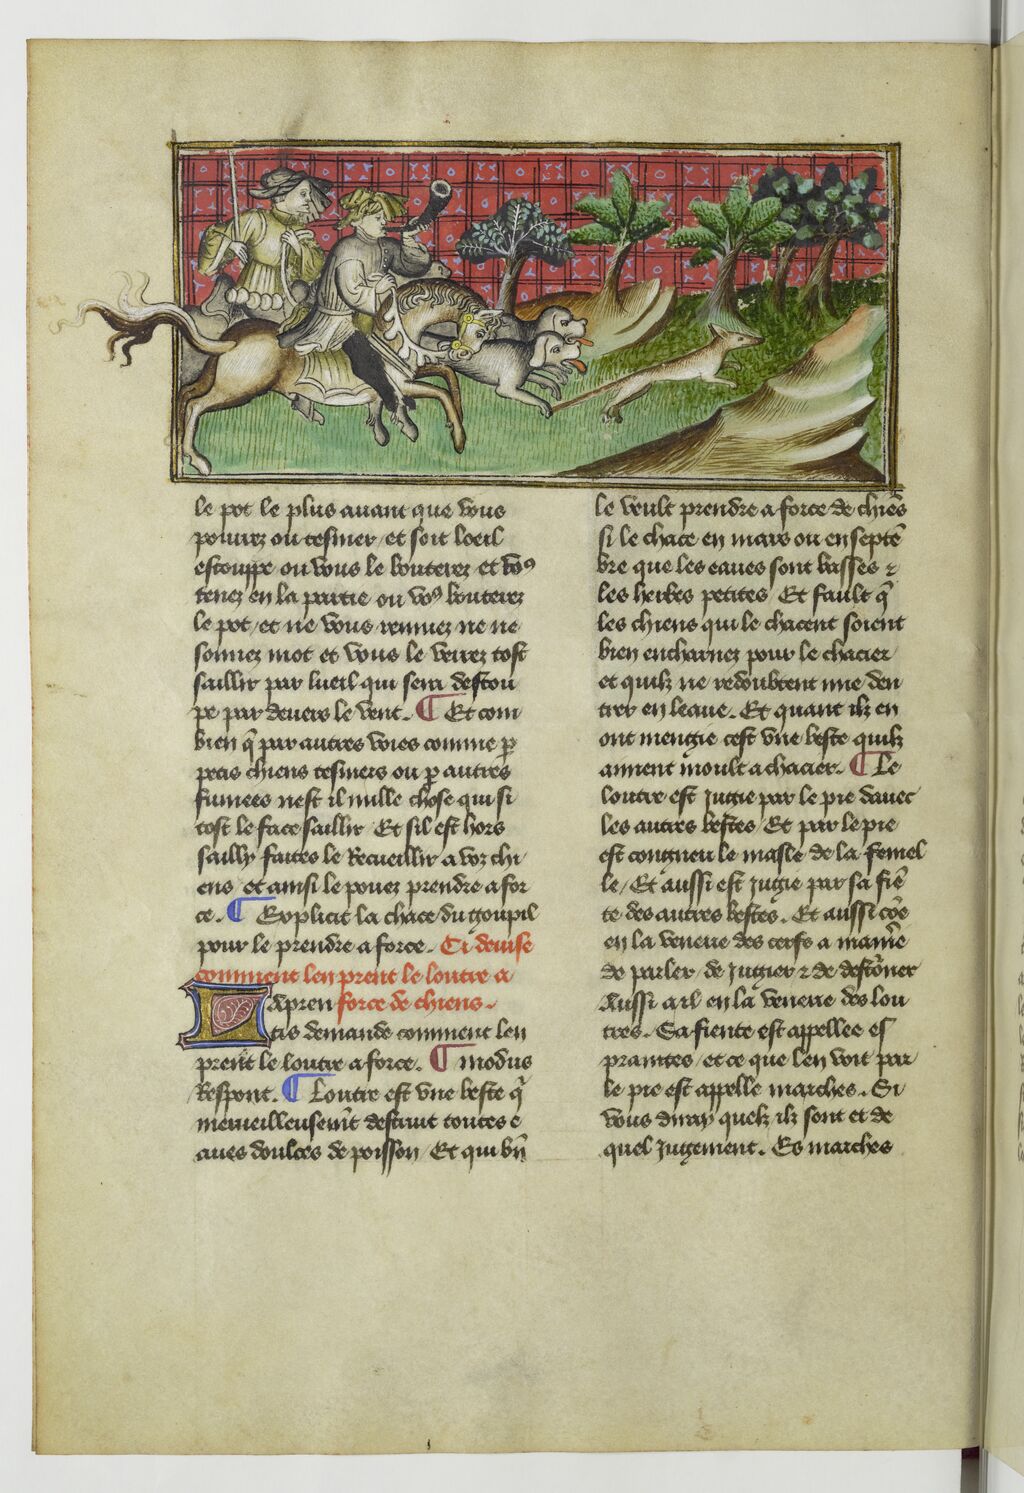 le pot le plus auant que vous
pourrez ou tesmer / et soit loeil
estouppe ou vous le bouterez et vo9
tenez en la partie ou vo9 bouterez
le pot / et ne vous remuez ne ne
sonnez mot et vous le verrez tost
saillir par lueil qui sera destou
pe par deuers le vent. ¶ Et com
bien q̃ par autres voies comme p̲
petis chiens tesmers ou p̲ autres
fumees nest il nulle chose qui si
tost le face saillir Et sil est hors
sailly faites le Recueillir a voz chi
ens / et ainsi le pouez prendre a for
ce. ¶ Explicit la chace du goupil
pour le prendre a force. Ci deuise
comment len prent le loutre a
Lapren force de chiens.
tis demande comment len
prent le loutre a force. ¶ modus
Respont. ¶ Loutre est vne beste q̃
merueilleusem̃t destruit toutes e
aues doulces de poisson / Et qui bñ
le veult prendre a force de chiẽs
si le chace en mars ou en septẽ
bre que les eaues sont basses ⁊
les herbes petites Et fault q̃
les chiens qui le chacent soient
bien encharnez pour le chacier
et quilz ne redoubtent mie den
trer en leaue. Et quant ilz en
ont mengie cest vne beste quilz
aiment moult a chacier. ¶ Le
loutre est jugie par le pie dauec
les autres bestes / Et par le pie
est congneu le masle de la femel
le / Et aussi est jugie par sa fiẽ
te des autres bestes. Et aussi cõe
en la venerie des cerfs a maniẽe
de parler / de jugier ⁊ de destõner
Aussi a il en la venerie des lou
tres. Sa fiente est appellee es
praintes / et ce que len voit par
le pie est appelle marches. Si
vous diray quelz ilz sont et de
quel jugement. Es marches